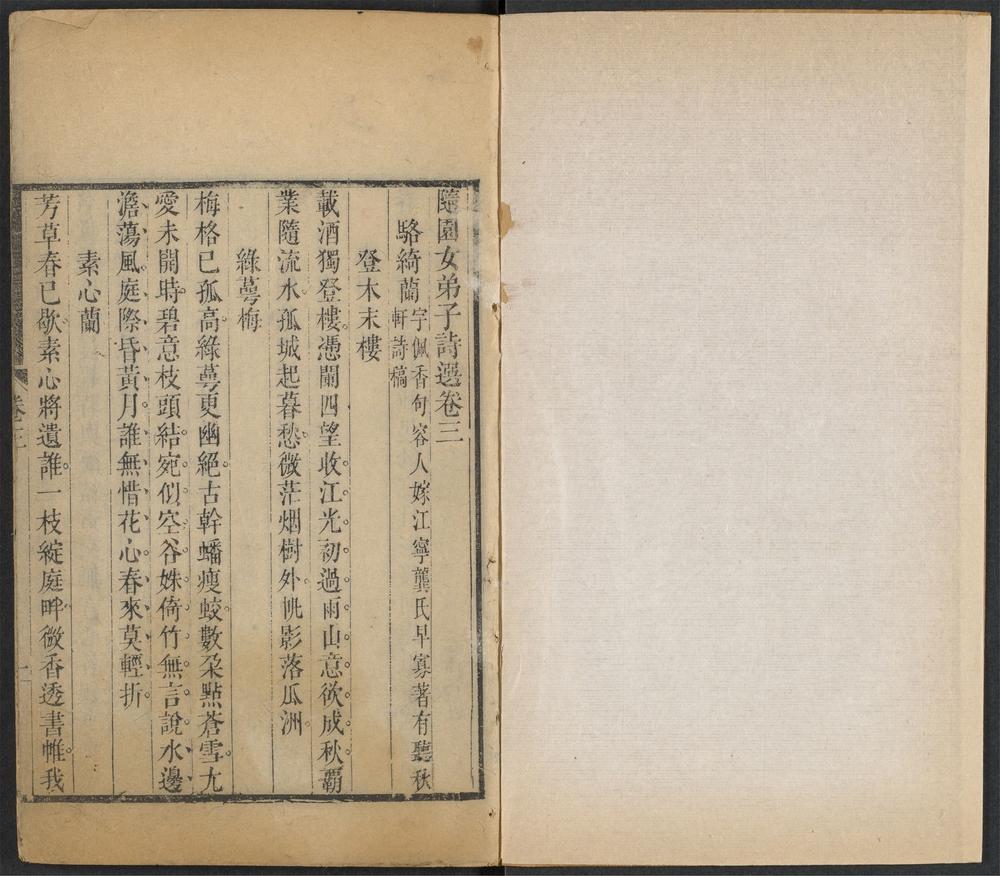 隨園女弟子詩選卷三
駱綺蘭
字佩香句容人嫁江寧龔氏早寡著有聽秋
軒詩稿
登木末樓
載酒獨登樓憑闌四望收江光初過雨山意欲成秋霸
業隨流水孤城起暮愁微茫烟樹外帆影落瓜洲
綠萼梅
梅格已孤高綠萼更幽絕古幹蟠瘦蛟數朶點蒼雪尢
愛未開時碧意枝頭結宛似空谷姝倚竹無言說水邊
澹蕩風庭際昏黃月誰無惜花心春來莫輕折
素心蘭
芳草春已歇素心將遺誰一枝綻庭畔微香透書帷我
卷三
一